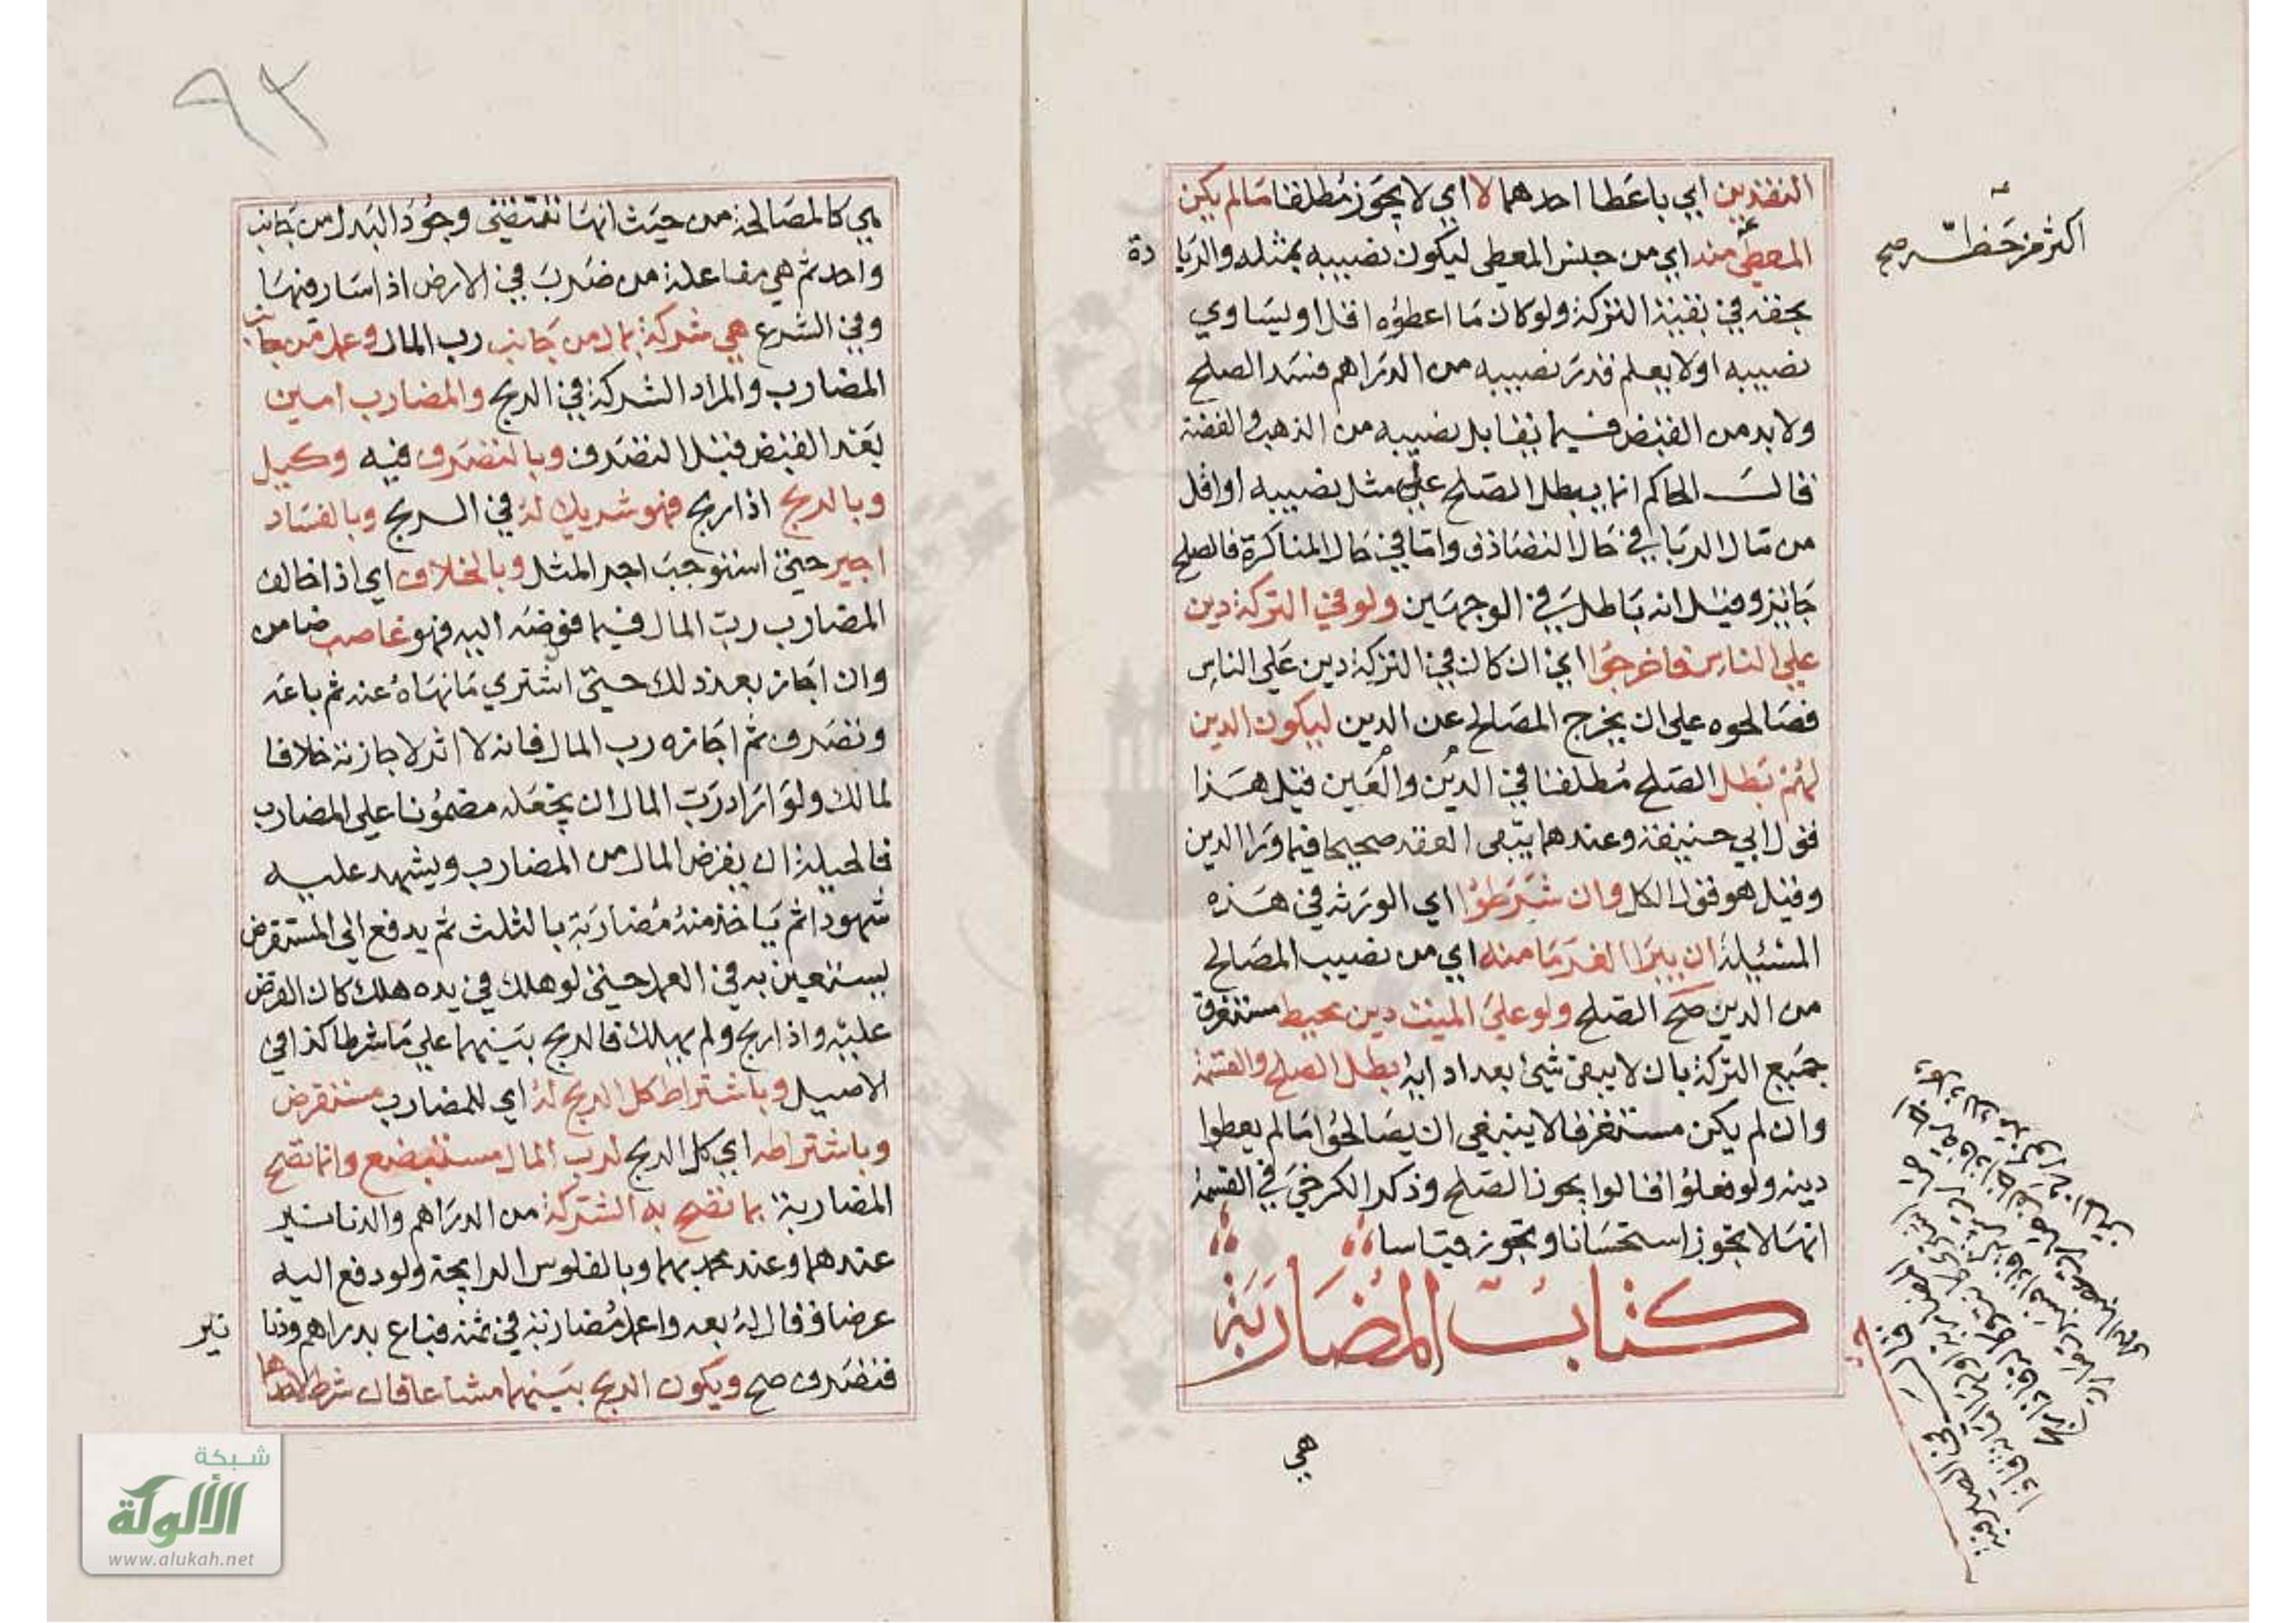 النقدين اي باعطا احدهما لا اي لا يجوز مطلقا مالم يكن
المعطى منه اي من جنس المعطى ليكون نصيبه بمثله والزيا دة
اكثر من حظه صح
بحقه في بقية التركة ولو كان ما اعطوه اقل او يساوي
نصيبه او لا يعلم قدر نصيبه من الدراهم فسد الصلح
ولا بد من القبض فيما يقابل نصيبه من الذهب والفضة
قال الحاكم انما يبطل الصلح على مثل نصيبه او اقل
من مال الربا في حال التصادق واما في حال المناكرة فالصلح
جائز وقيل انه باطل في الوجهين ولو في التركة دين
على الناس فاخرجوا اي ان كان في التركة دين على الناس
فصالحوه على ان يخرج المصالح عن الدين ليكون الدين
لهم بطل الصلح مطلقا في الدين والعين قيل هذا
قول ابي حنيفة وعندهما يبقى العقد صحيحا فيما ورا الدين
وقيل هو قول الكل وان شرطوا اي الورثة في هذه
المسئلة ان يبرا الغرما منه اي من نصيب المصالح
من الدين صح الصلح ولو على الميت دين محيط مستغرق
جميع التركة بان لا يبقى شيئ بعد ادايه بطل الصلح والقسمة
وان لم يكن مستغرقا لا ينبغي ان يصالحوا مالم يعطوا
دينه ولو فعلوا قالوا يجوز الصلح وذكر الكرخي في القسمة
انها لا تجوز استحسانا وتجوز قياسا
كتاب المضاربة
هي
٩٢
هي كالمصالحة من حيث انها تقتضي وجود البدل من جانب
واحد ثم هي مفاعلة من ضرب في الارض اذا سار فيها
وفي الشرع هي شركة بمال من جانب رب المال وعمل من جانب
المضارب والمراد الشركة في الربح والمضارب امين
بعد القبض قبل التصرف وبالتصرف فيه وكيل
وبالربح اذا ربح فهو شريك له في الربح وبالفساد
اجير حتى استوجب اجر المثل وبالخلاف اي اذا خالف
المضارب رب المال فيما فوضه اليه فهو غاصب ضامن
وان اجاز بعد ذلك حتى اشتري ما نهاه عنه ثم باعه
وتصرف ثم اجازه رب المال فانه لا اثر لاجازته خلافا
لمالك ولو اراد رب المال ان يجعله مضمونا على المضارب
فالحيلة ان يقرض المال من المضارب ويشهد عليه
شهودا ثم ياخذ منه مضاربة بالثلث ثم يدفع الى المستقرض
يستعين به في العمل حتى لو هلك في يده هلك كان القرض
عليه واذا ربح ولم يهلك فالربح بينهما على ما شرطا كذا في
الاصيل وباشتراط كل الربح له اي للمضارب مستقرض
وباشتراطه اي كل الربح لرب المال مستبضع وانما تصح
المضاربة بما تصح به الشركة من الدراهم والدنانير
عندهما وعند محمد بهما وبالفلوس الرابحة ولو دفع اليه
عرضا وقال له بعه واعمل مضاربة في ثمنه فباع بدراهم ودنا نير
فتصرف صح ويكون الربح بينهما مشاعا فان شرط لاحدهما
شبكة
الألوكة
www.alukah.net